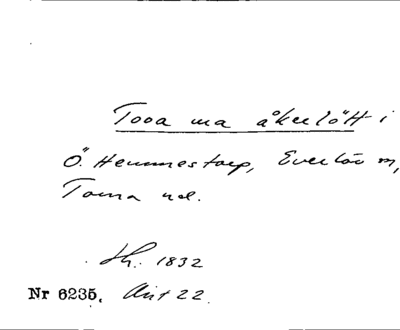 Tooa ma åkerlött i
Ö. Hemmestorp, Everlöv sn,
Torna hd.
Sk. 1832
Nr 6235. Avt 22.